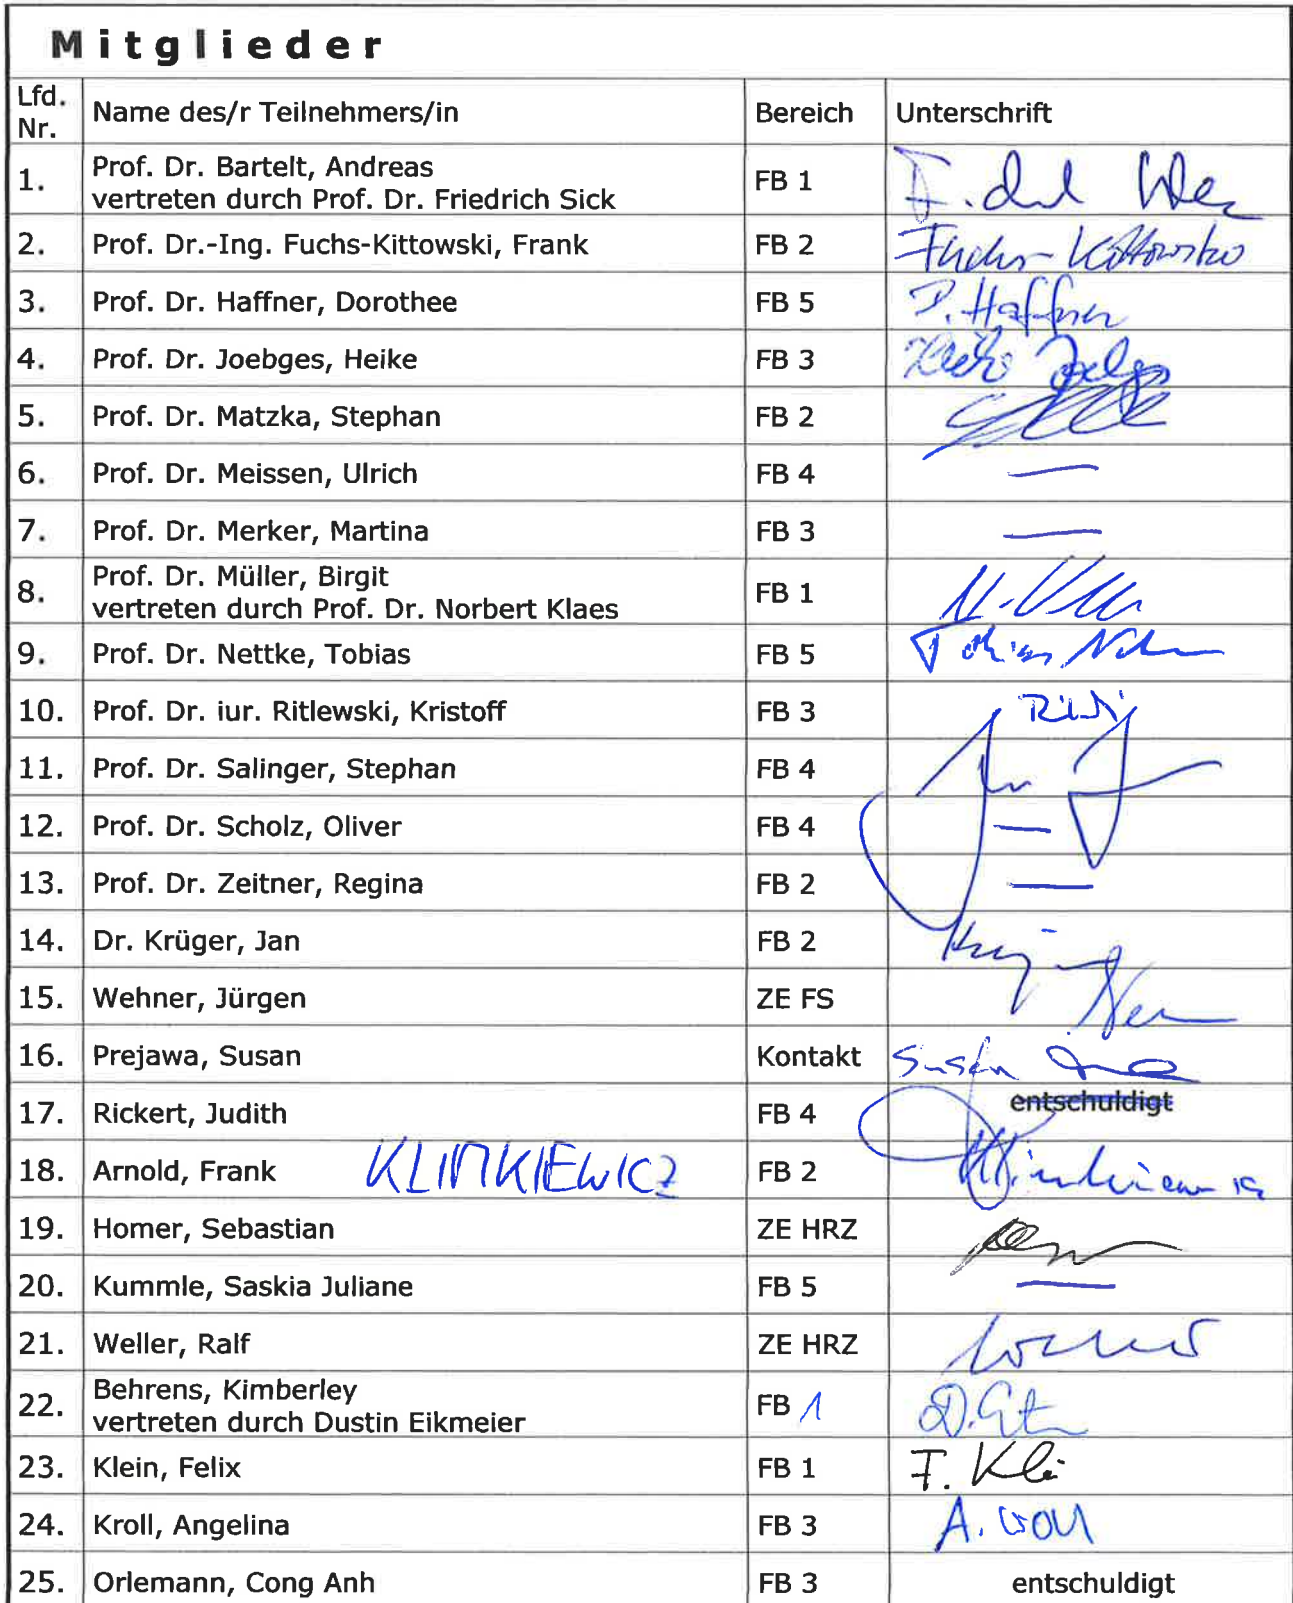 Mitglieder
Lfd. Nr. Name des/r Teilnehmers/in Bereich Unterschrift
1. Prof. Dr. Bartelt, Andreas
vertreten durch Prof. Dr. Friedrich Sick FB 1
2. Prof. Dr.-Ing. Fuchs-Kittowski, Frank FB 2 Fuchs-Kittowski
3. Prof. Dr. Haffner, Dorothee FB 5 D. Haffner
4. Prof. Dr. Joebges, Heike FB 3
5. Prof. Dr. Matzka, Stephan FB 2
6. Prof. Dr. Meissen, Ulrich FB 4 —
7. Prof. Dr. Merker, Martina FB 3 —
8. Prof. Dr. Müller, Birgit
vertreten durch Prof. Dr. Norbert Klaes FB 1
9. Prof. Dr. Nettke, Tobias FB 5 Tobias
10. Prof. Dr. iur. Ritlewski, Kristoff FB 3
11. Prof. Dr. Salinger, Stephan FB 4
12. Prof. Dr. Scholz, Oliver FB 4 —
13. Prof. Dr. Zeitner, Regina FB 2 —
14. Dr. Krüger, Jan FB 2
15. Wehner, Jürgen ZE FS
16. Prejawa, Susan Kontakt Susan
17. Rickert, Judith FB 4 entschuldigt
18. Arnold, Frank KLIMKIEWICZ FB 2
19. Homer, Sebastian ZE HRZ
20. Kummle, Saskia Juliane FB 5 —
21. Weller, Ralf ZE HRZ
22. Behrens, Kimberley
vertreten durch Dustin Eikmeier FB 1
23. Klein, Felix FB 1 F. Klei
24. Kroll, Angelina FB 3 A. Kroll
25. Orlemann, Cong Anh FB 3 entschuldigt